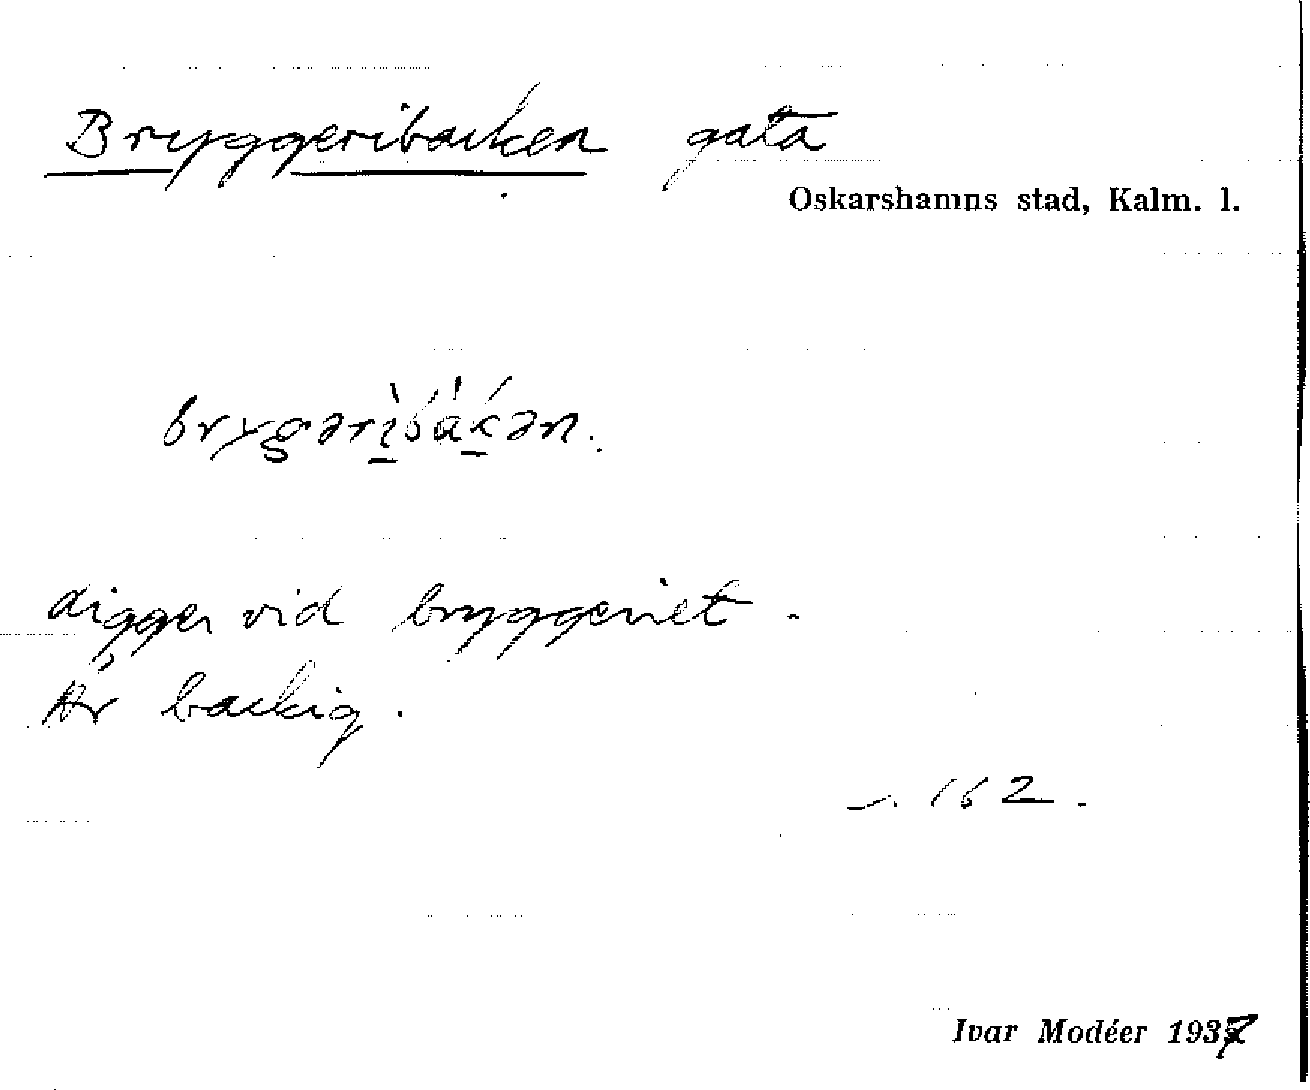 Bryggeribacken gata
Oskarshamns stad, Kalm. l.
brygərìbákən.
Ligger vid bryggeriet.
Är backig.
s. 162.
Ivar Modéer 1937